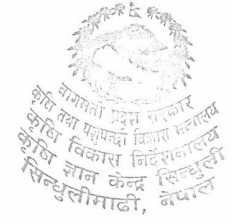 बागमती प्रदेश सरकार
कृषि तथा पशुपन्छी विकास मन्त्रालय
कृषि विकास निर्देशनालय
कृषि ज्ञान केन्द्र सिन्धुली
सिन्धुलीमाढी, नेपाल